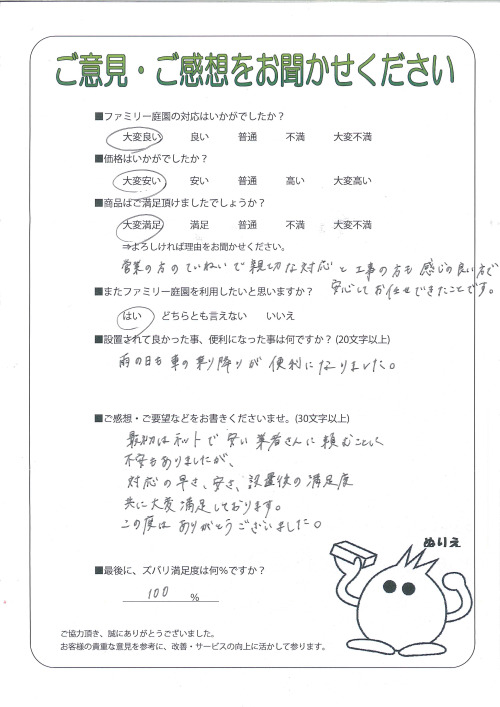 ご意見・ご感想をお聞かせください
■ファミリー庭園の対応はいかがでしたか？
大変良い 良い 普通 不満 大変不満
■価格はいかがでしたか？
大変安い 安い 普通 高い 大変高い
■商品はご満足頂けましたでしょうか？
大変満足 満足 普通 不満 大変不満
⇒よろしければ理由をお聞かせください。
営業の方のていねいで親切な対応と工事の方も感じの良い方で
安心してお任せできたことです。
■またファミリー庭園を利用したいと思いますか？
はい どちらとも言えない いいえ
■設置されて良かった事、便利になった事は何ですか？(20文字以上)
雨の日も車の乗り降りが便利になりました。
■ご感想・ご要望などをお書きくださいませ。(30文字以上)
最初はネットで安い業者さんに頼むことに
不安もありましたが、
対応の早さ、安さ、設置後の満足度
共に大変満足しております。
この度はありがとうございました。
ぬりえ
■最後に、ズバリ満足度は何%ですか？
100 %
ご協力頂き、誠にありがとうございました。
お客様の貴重な意見を参考に、改善・サービスの向上に活かして参ります。